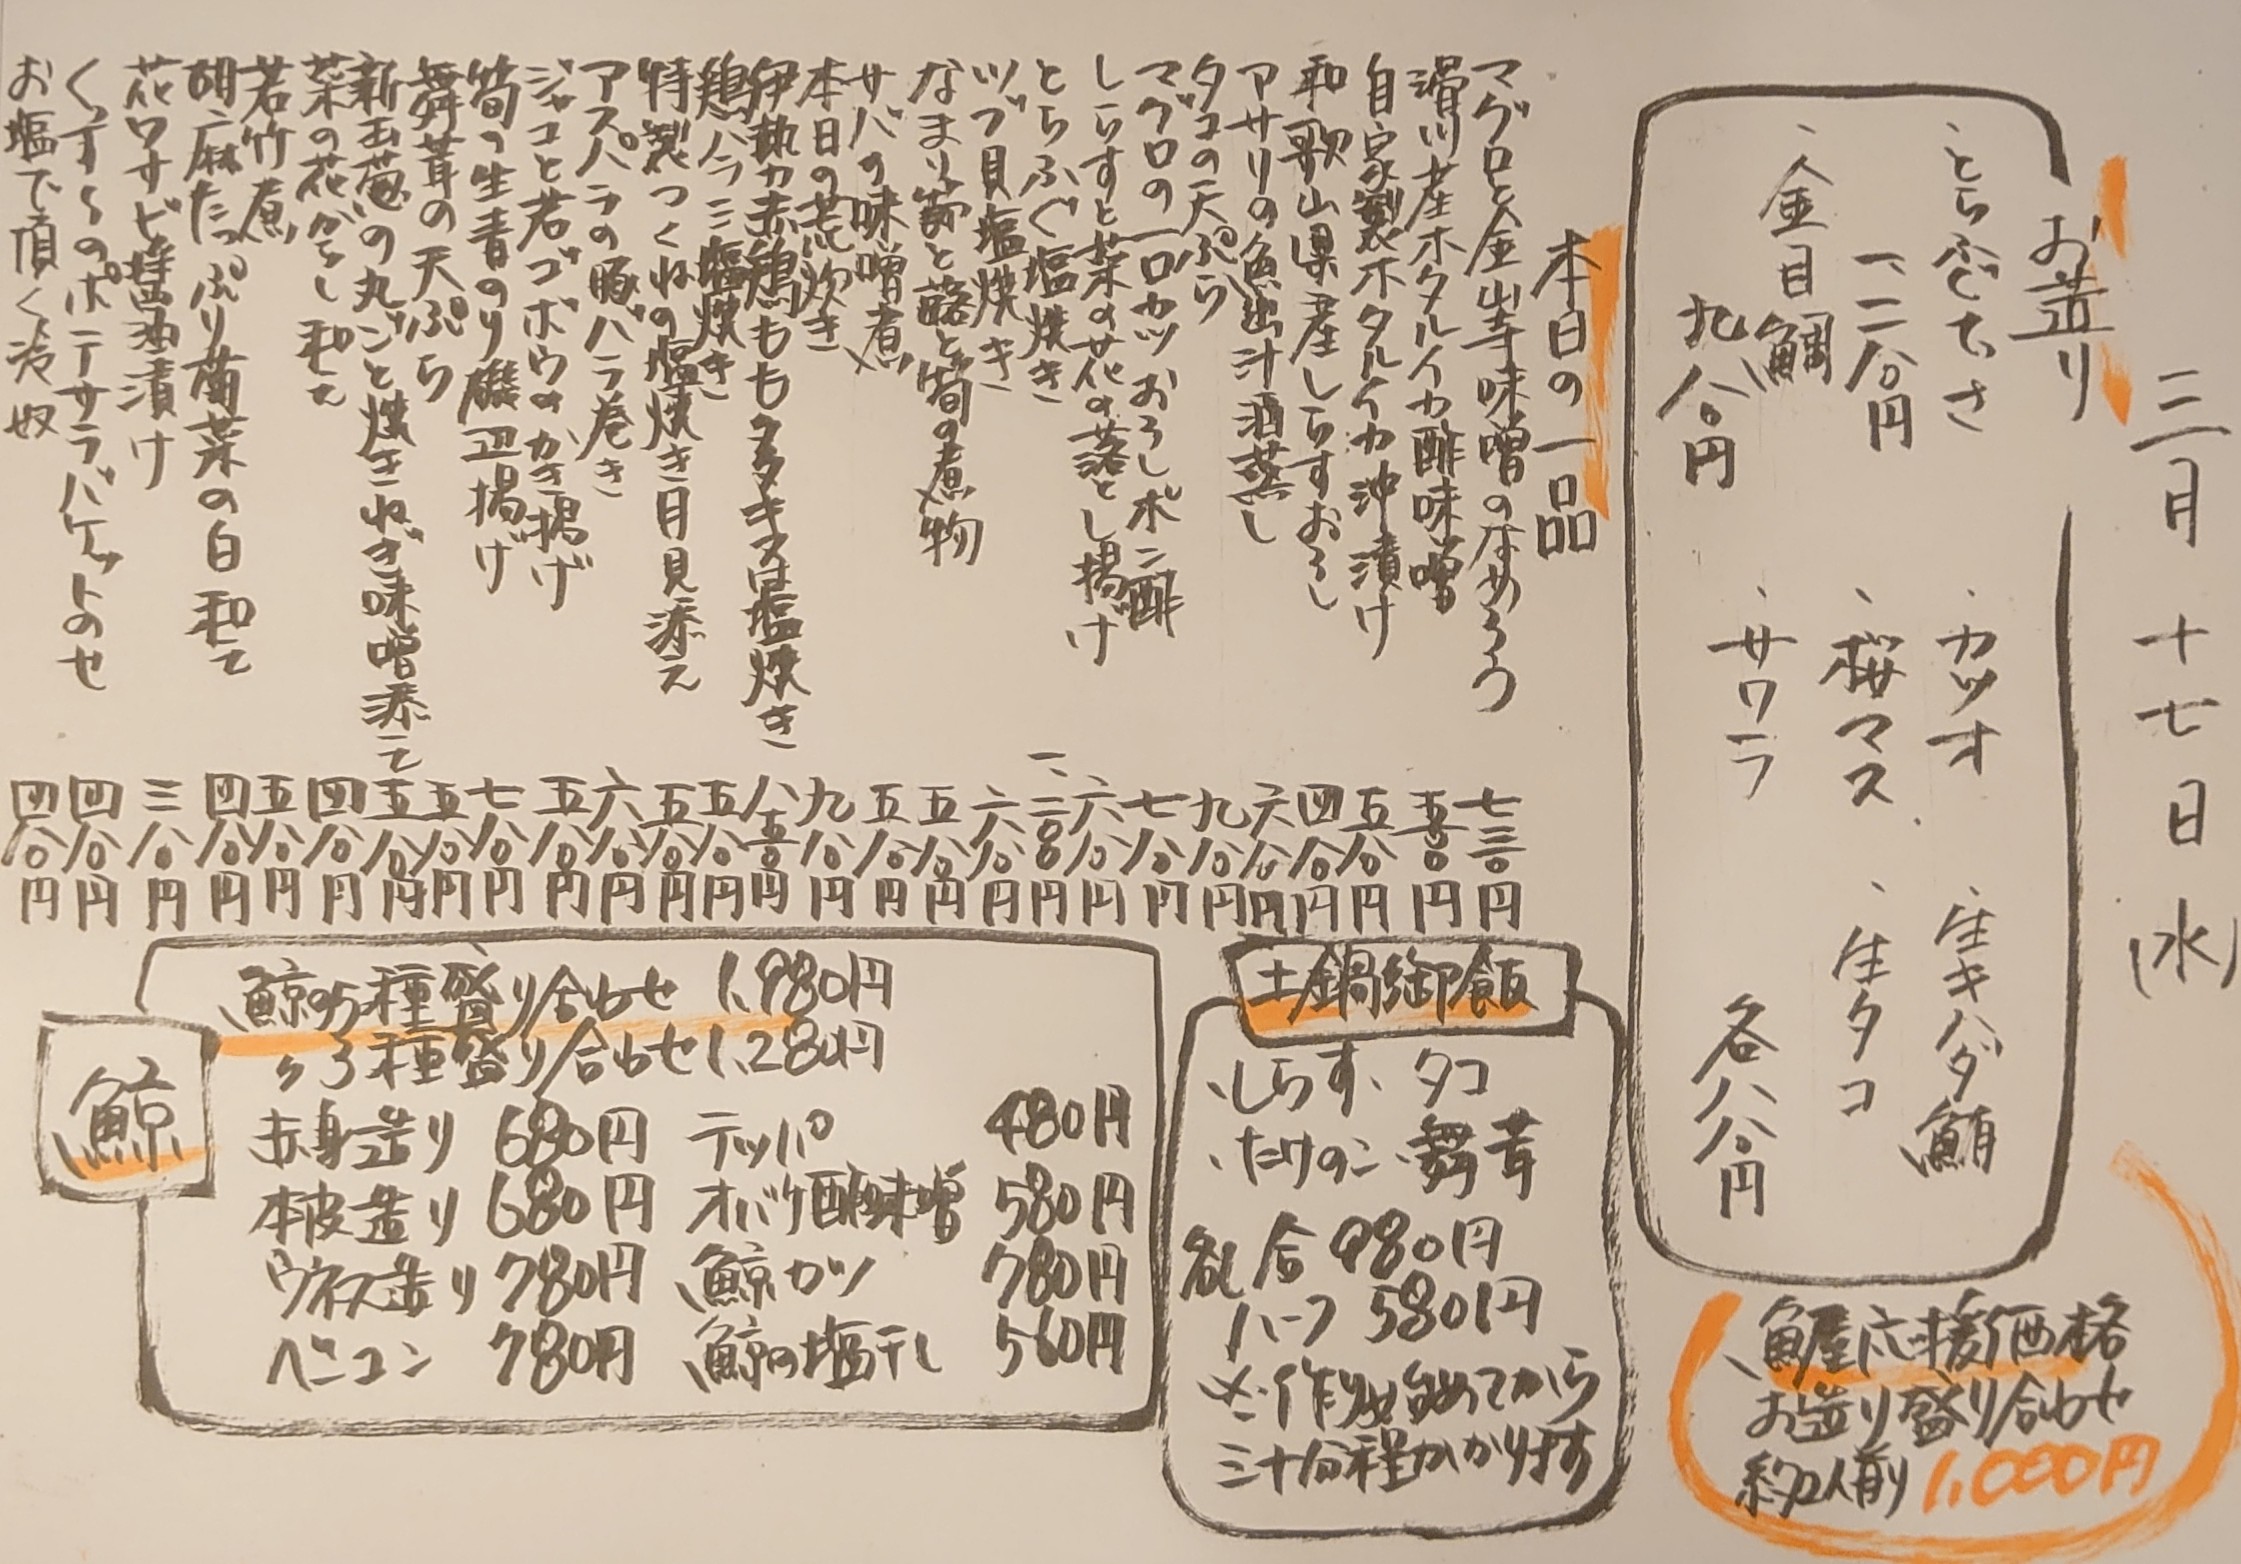 三月十七日(水)
お造り
、とらぶぐたゝさ
一、二八〇円
、金目鯛
九八〇円
、カツオ
、桜マス
、サワラ
、生キハダ鮪
、生タコ
各八八〇円
魚屋応援価格
お造り盛り合わせ
約2人前 1,000円
本日の一品
マグロと金山寺味噌のなめろう 七三〇円
滑川産ホタルイカ酢味噌 五五〇円
自家製ホタルイカ沖漬け 五八〇円
和歌山県産しらすおろし 四八〇円
アサリの魚出汁酒蒸し 六八〇円
タコの天ぷら 九八〇円
マグロの一口カツおろしポン酢 七八〇円
しらすと菜の花の落とし揚げ 六八〇円
とらふぐ塩焼き 一、二八〇円
ツブ貝塩焼き 六八〇円
なまり節と蕗と筍の煮物 五八〇円
サバの味噌煮 五八〇円
本日の荒炊き 九八〇円
伊勢赤鶏もも又は塩焼き 八五〇円
鶏ハラミ塩焼き 五八〇円
特製つくねの塩焼き月見添え 五八〇円
アスパラの豚バラ巻き 六八〇円
ジャコと若ゴボウのかき揚げ 五八〇円
筍の生青のり磯辺揚げ 七八〇円
舞茸の天ぷら 五八〇円
新玉葱の丸ごと焼きねぎ味噌添え 五八〇円
菜の花からし和え 四八〇円
若竹煮 五八〇円
胡麻たっぷり菊菜の白和え 四八〇円
花ワサビ醤油漬け 三八〇円
くんすくのポテサラバケットのせ 四八〇円
お塩で頂く冷奴 四八〇円
土鍋御飯
、しらす、タコ
、たけのこ、舞茸
各一合 980円
ハーフ 580円
※作り始めてから
三十分程かかります
鯨
鯨の5種盛り合わせ 1,980円
〃 3種盛り合わせ 1,280円
赤身造り 680円 テッパ 480円
本皮造り 680円 オバケ酢味噌 580円
ウネス造り 780円 鯨カツ 780円
ベーコン 780円 鯨の塩干し 560円